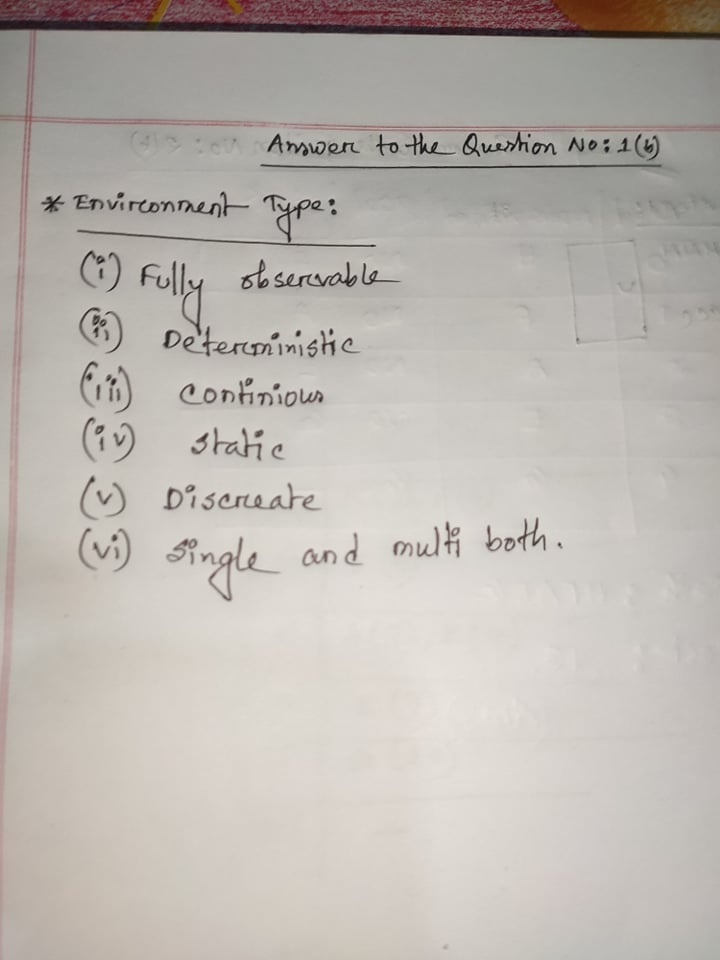 Answer to the Question No: 1(b)
* Environment Type:
(i) Fully observable
(ii) Deterministic
(iii) continious
(iv) static
(v) Discreate
(vi) single and multi both.